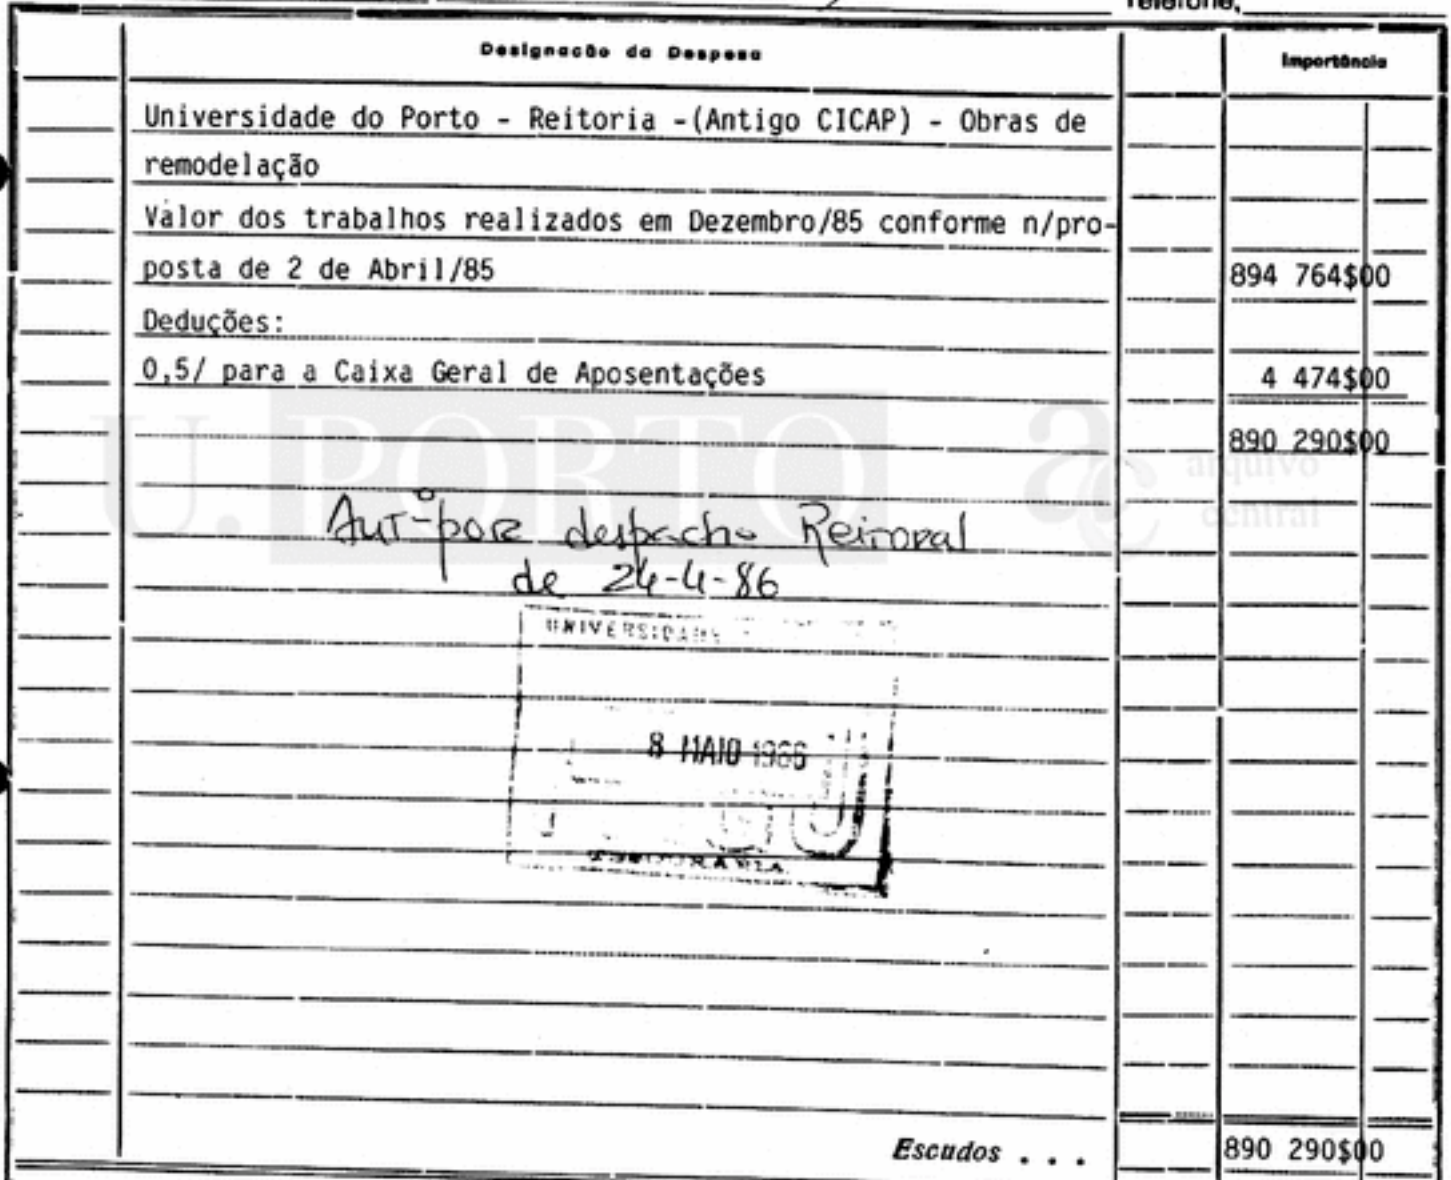 Telefone,
Designação da Despesa
Importância
Universidade do Porto - Reitoria -(Antigo CICAP) - Obras de
remodelação
Valor dos trabalhos realizados em Dezembro/85 conforme n/pro-
posta de 2 de Abril/85 894 764$00
Deduções:
0,5/ para a Caixa Geral de Aposentações 4 474$00
890 290$00
U. PORTO
arquivo
central
Autº por despacho Reitoral
de 24-4-86
UNIVERSIDADE
8 MAIO 1986
TESOURARIA
Escudos . . . 890 290$00